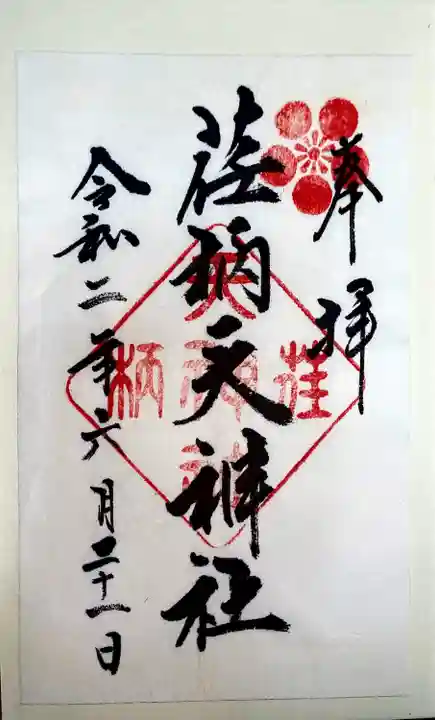 奉拝
荏柄天神社
令和二年六月二十一日